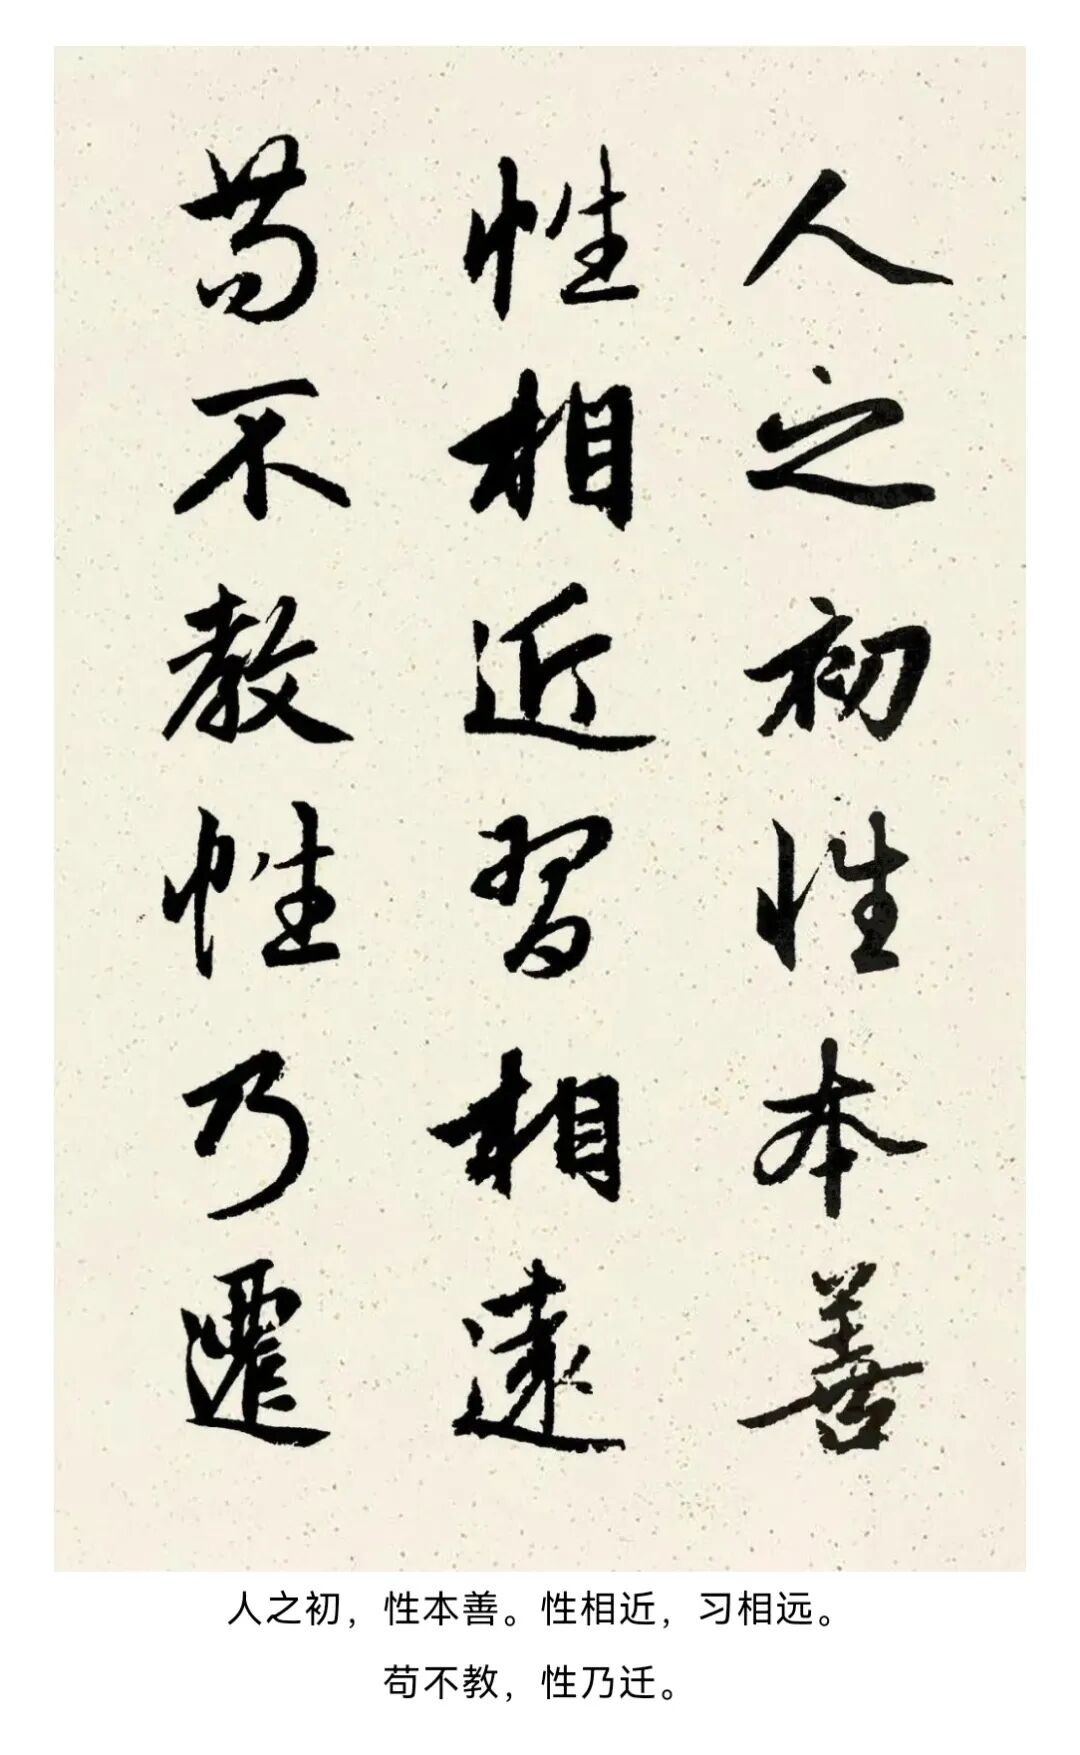 人之初性本善
性相近習相遠
苟不教性乃遷
人之初，性本善。性相近，习相远。
苟不教，性乃迁。